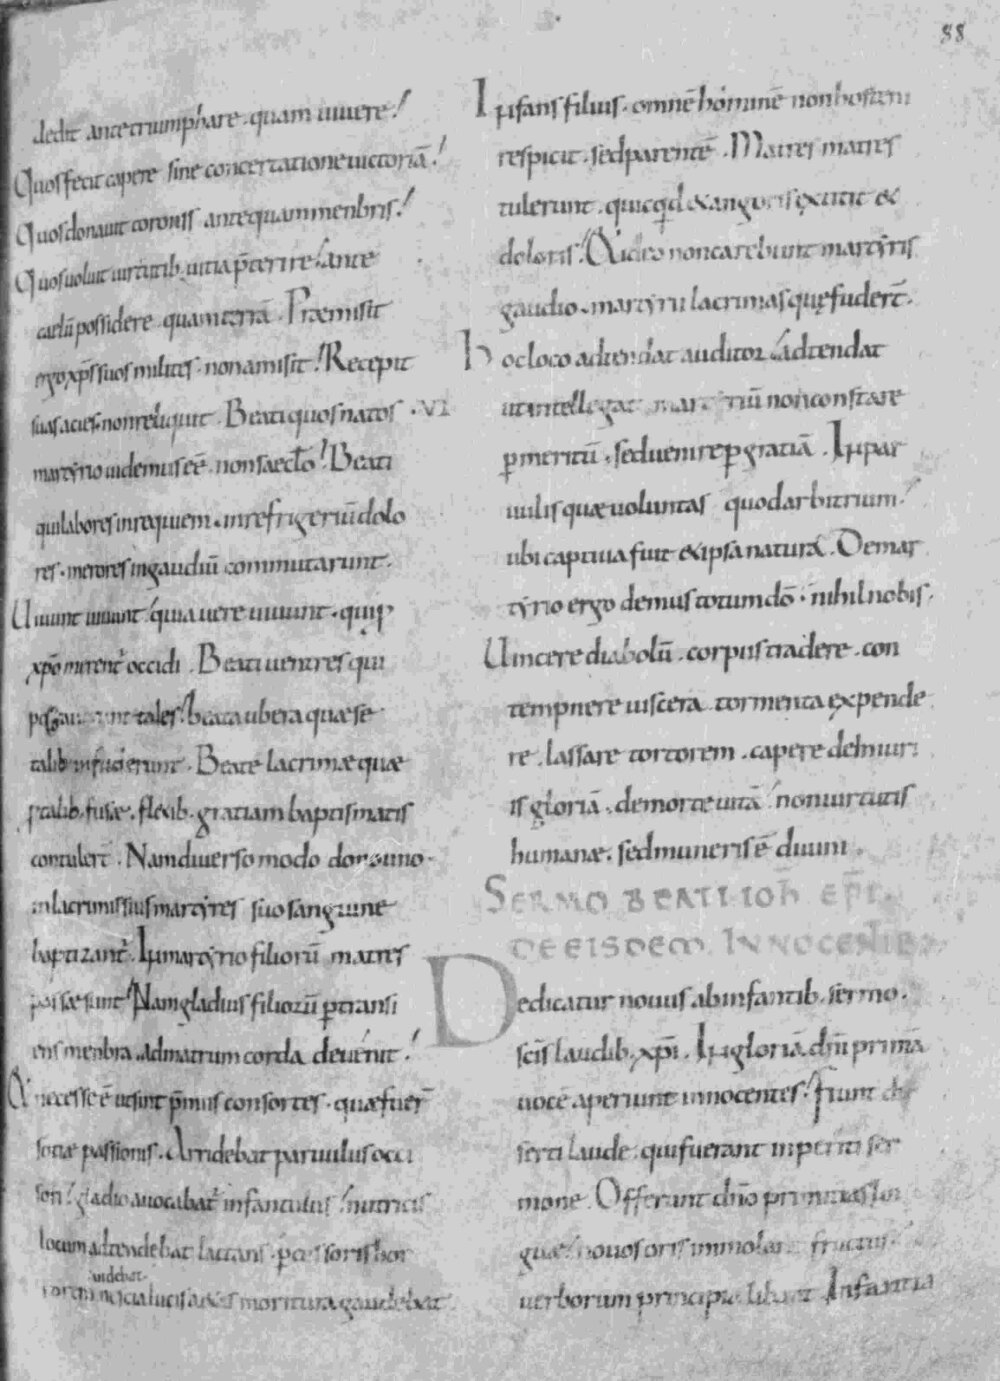 88
dedit ante triumphare · quam uiuere!
Quos fecit capere sine concertatione uictoriā!
Quos donauit coronis antequam menbris!
Quos uoluit uirtutib; uitia p̄terire! ante
caelū possidere · quam terrā · Praemisit
ergo xp̄s suos milites · non amisit! Recepit
suas acies · non reliquit · Beati quos natos · VI
martyrio uidemus eē · non saeclo! Beati
qui labores in requiem · in refrigeriū dolo
res · merores in gaudiū commutarunt ·
Uiuunt uiuunt! quia uere uiuunt · qui p
xp̄o merent᷑ occidi · Beati uentres qui
tales! beata ubera quae se
talib; infuderunt · Beate lacrimae quae
p talib; fusae · fletib; gratiam baptismatis
contulert̄ · Nam diuerso modo dono uno ·
in lacrimis suis martyres suo sanguine
baptizant᷑ · In martyrio filiorū matres
passae sunt! Nam gladius filiorū ꝑtransi
ens menbra · ad matrum corda deuenit!
necesse ē ut sint p̄mii consortes · quae fuer̄
sotiae passionis · Arridebat paruulus occi
sori! gladio auocabat᷑ infantulus! nutricis
locum adtendebat lactans · percussoris hor
uidebat
lucis moritura gaudebat
Infans filius · omnē hominē non hostem
respicit · sed parentē · Matres matres
tulerunt · quicqd & angoris extitit &
doloris! Ideo non carebunt martyris
gaudio · martyrū lacrimas quę fudert̄ ·
Hoc loco adtendat auditor! adtendat
ut intellegat martyriū non constare
ꝑ meritū · sed uenire ꝑ gratiā · In par
uulis quae uoluntas quod arbitrium!
ubi captiua fuit & ipsa natura · De mar
tyrio ergo demus totum dō · nihil nobis ·
Uincere diabolū · corpus tradere · con
tempnere uiscera tormenta expende
re · lassare tortorem · capere de iniuri
is gloriā · de morte uitā! non uirtutis
humanae · sed muneris ē diuini ·
SERMO BEATI IOH EP̄I ·
DE EISDEM INNOCENTIB;
Dedicatur nouus ab infantib; sermo ·
sc̄is laudib; xp̄i · In gloriā dn̄i primā
uocē aperiunt innocentes! fiunt di
serti laude · qui fuerant inperiti ser
mone · Offerunt dn̄o primitias lin
guae! nouos oris immolant fructus
uerborum principia libant Infantia